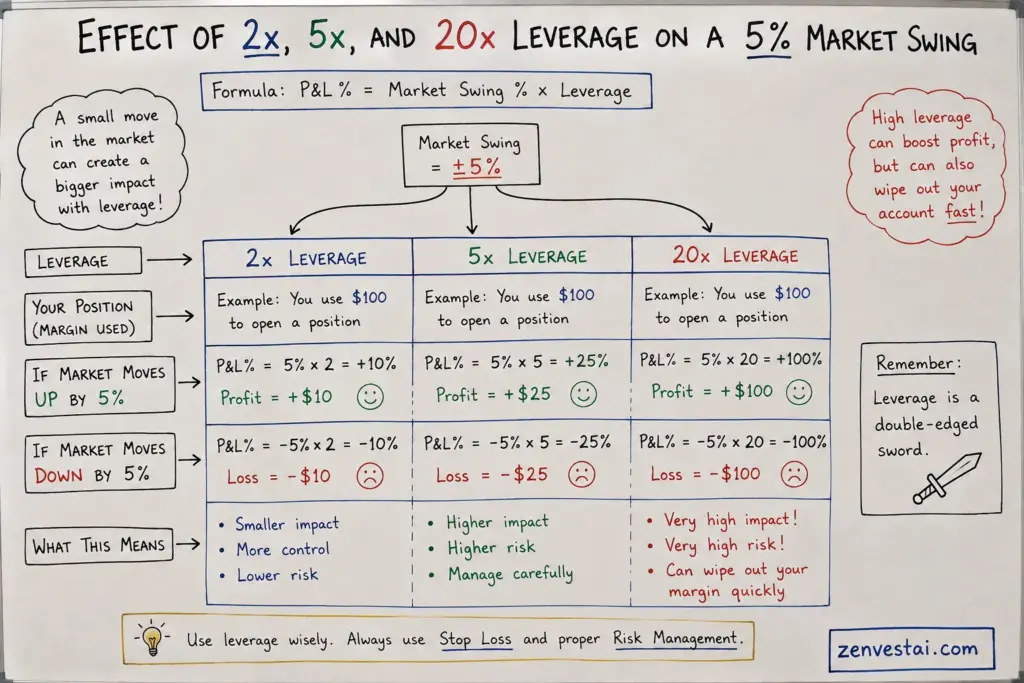 EFFECT OF 2x, 5x, AND 20x LEVERAGE ON A 5% MARKET SWING
Formula: P&L % = Market Swing % x Leverage
A small move
in the market
can create a
bigger impact
with leverage!
Market Swing
= ±5%
High leverage
can boost profit,
but can also
wipe out your
account fast!
LEVERAGE
2x LEVERAGE
5x LEVERAGE
20x LEVERAGE
YOUR POSITION
(MARGIN USED)
Example: You use $100
to open a position
Example: You use $100
to open a position
Example: You use $100
to open a position
IF MARKET MOVES
UP BY 5%
P&L% = 5% x 2 = +10%
Profit = +$10
P&L% = 5% x 5 = +25%
Profit = +$25
P&L% = 5% x 20 = +100%
Profit = +$100
IF MARKET MOVES
DOWN BY 5%
P&L% = -5% x 2 = -10%
Loss = -$10
P&L% = -5% x 5 = -25%
Loss = -$25
P&L% = -5% x 20 = -100%
Loss = -$100
WHAT THIS MEANS
• Smaller impact
• More control
• Lower risk
• Higher impact
• Higher risk
• Manage carefully
• Very high impact!
• Very high risk!
• Can wipe out your
margin quickly
Remember:
Leverage is a
double-edged
sword.
Use leverage wisely. Always use Stop Loss and proper Risk Management.
zenvestai.com